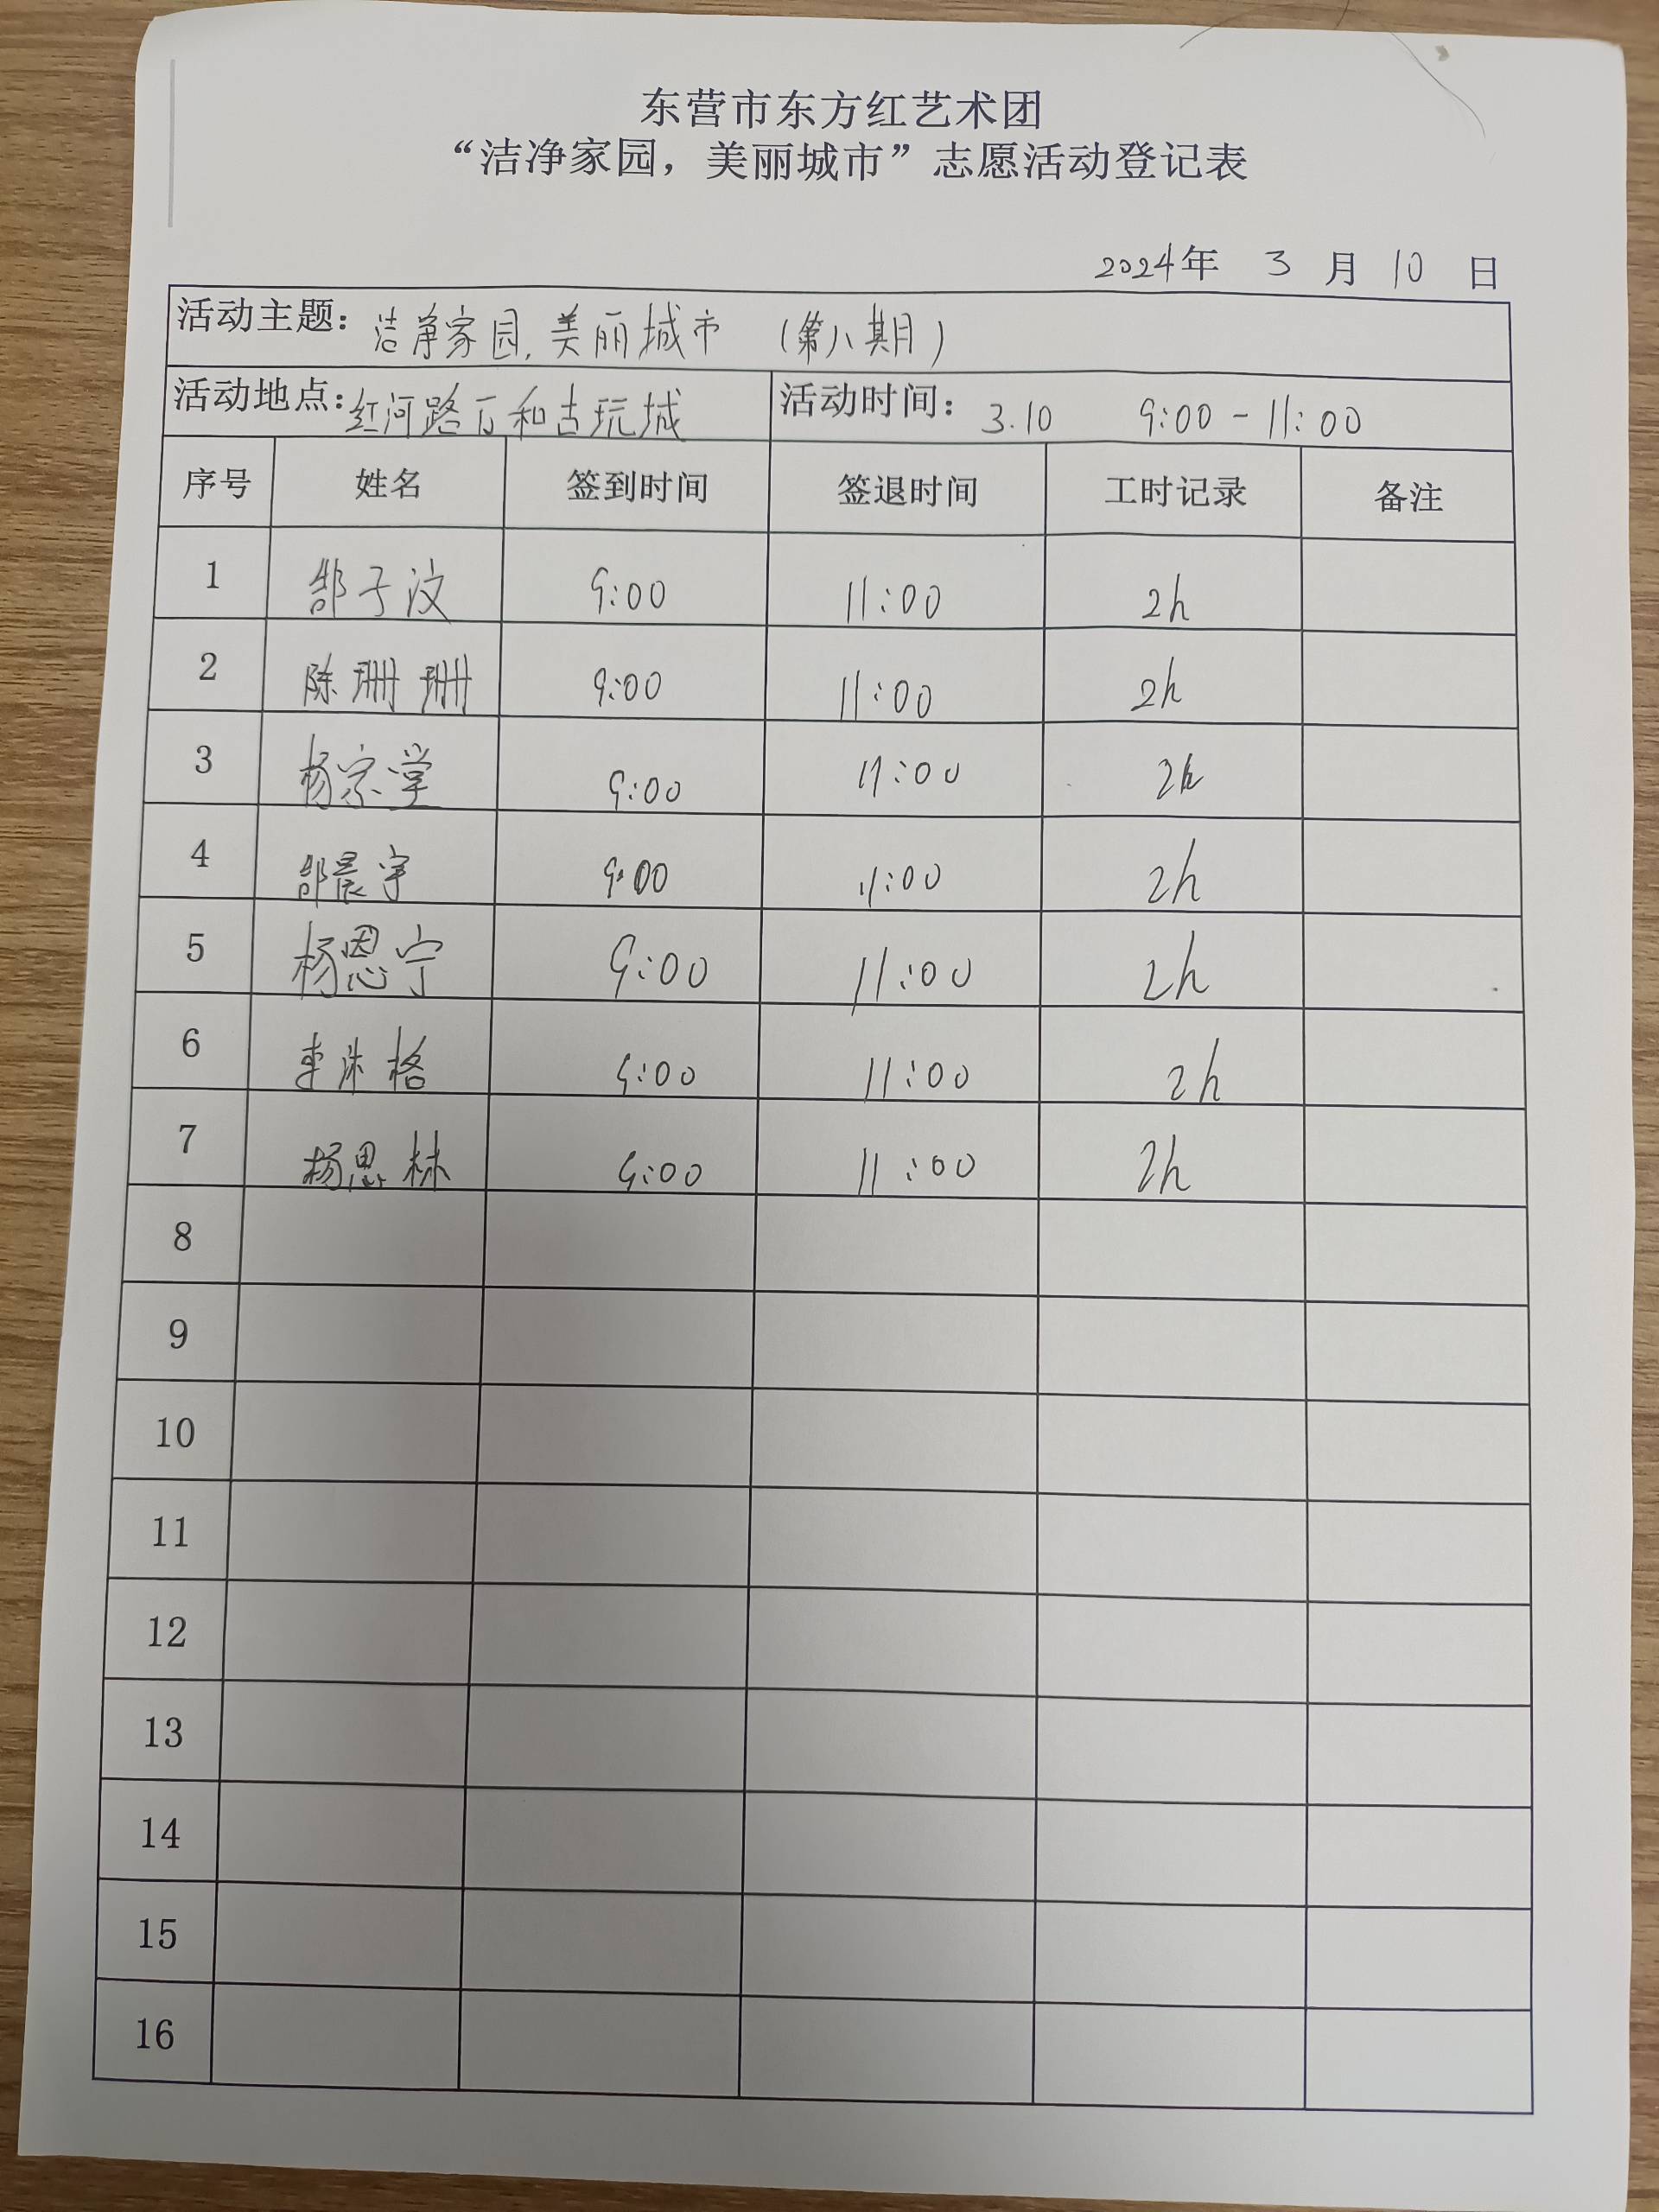 东营市东方红艺术团
“洁净家园，美丽城市”志愿活动登记表
2024年 3 月 10 日
活动主题：洁净家园,美丽城市 (第八期)
活动地点：红河路万和古玩城 活动时间：3.10 9:00-11:00
序号 姓名 签到时间 签退时间 工时记录 备注
1 郜子汶 9:00 11:00 2h
2 陈珊珊 9:00 11:00 2h
3 杨宗堂 9:00 11:00 2h
4 郜晨宇 9:00 11:00 2h
5 杨恩宁 9:00 11:00 2h
6 格 9:00 11:00 2h
7 杨思林 9:00 11:00 2h
8
9
10
11
12
13
14
15
16